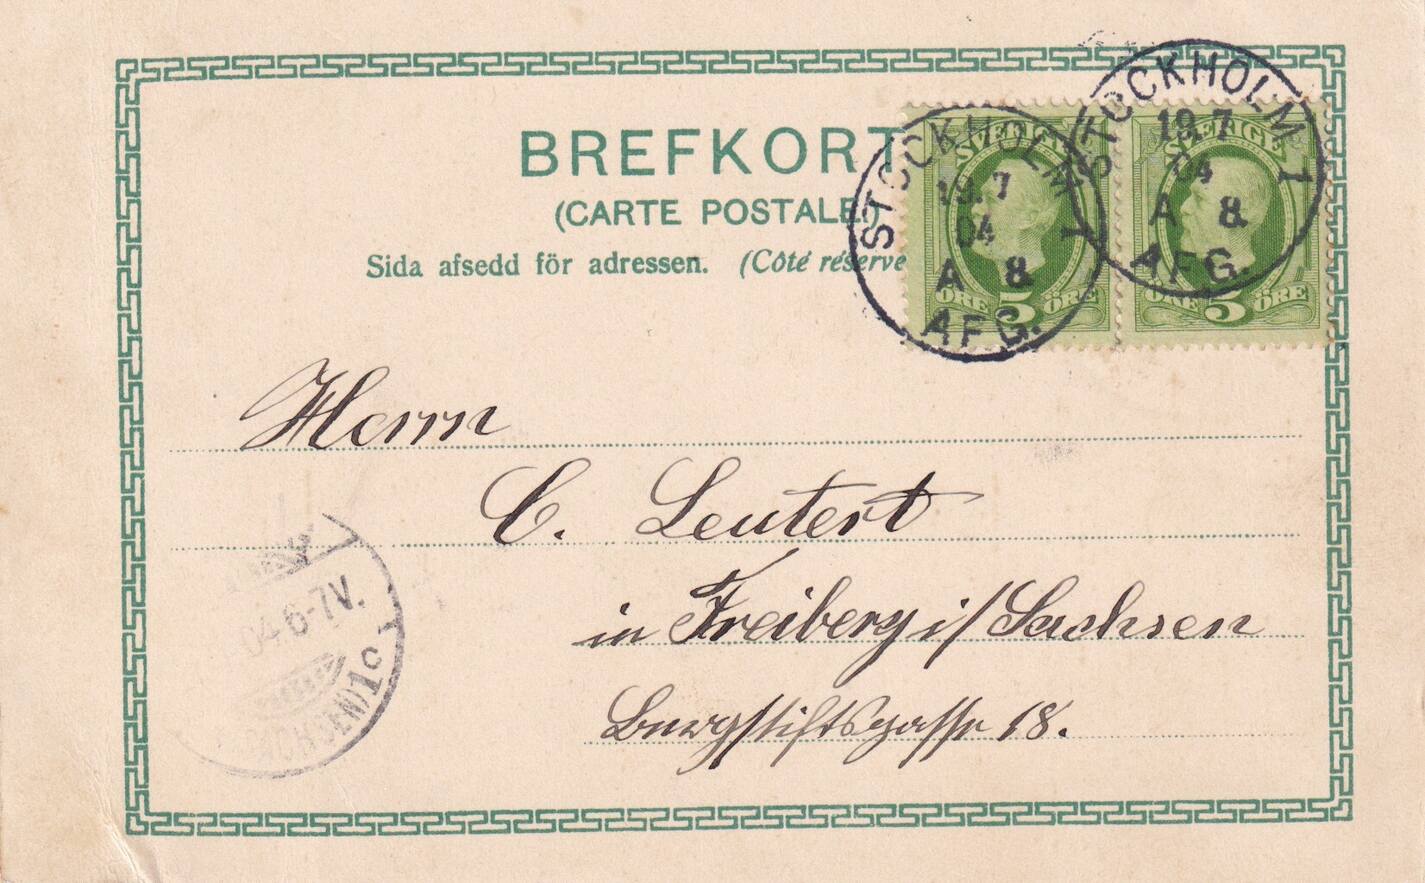 BREFKORT
(CARTE POSTALE)
Sida afsedd för adressen. (Côté réservé
SVERIGE
ÖRE 5 ÖRE
STOCKHOLM 1
19.7
04
A 8
AFG.
SVERIGE
ÖRE 5 ÖRE
STOCKHOLM 1
19.7
04
A 8
AFG.
Herrn
C. Leutert
in Freiberg i/Sachsen
18.
04 6-7V.
ACHSEN) 1c